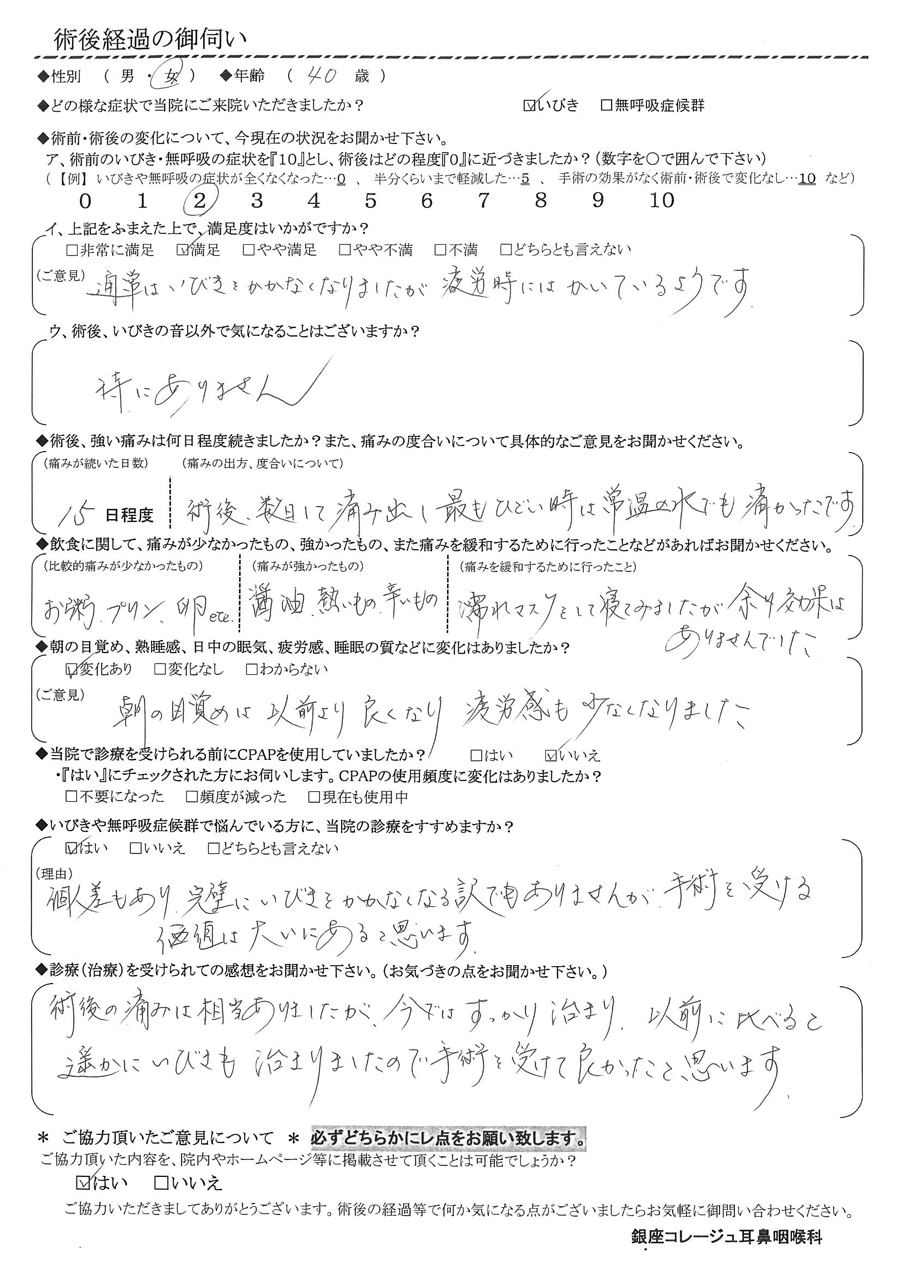 術後経過の御伺い
◆性別 （ 男 ・ 女 ） ◆年齢 （ 40 歳 ）
◆どの様な症状で当院にご来院いただきましたか？ ☑いびき □無呼吸症候群
◆術前・術後の変化について、今現在の状況をお聞かせ下さい。
ア、術前のいびき・無呼吸の症状を『10』とし、術後はどの程度『0』に近づきましたか？（数字を○で囲んで下さい）
（【例】 いびきや無呼吸の症状が全くなくなった…0 、 半分くらいまで軽減した…5 、 手術の効果がなく術前・術後で変化なし…10 など）
0 1 2 3 4 5 6 7 8 9 10
イ、上記をふまえた上で、満足度はいかがですか？
□非常に満足 ☑満足 □やや満足 □やや不満 □不満 □どちらとも言えない
（ご意見） 通常はいびきをかかなくなりましたが 疲労時にはかいているようです
ウ、術後、いびきの音以外で気になることはございますか？
特にありません
◆術後、強い痛みは何日程度続きましたか？また、痛みの度合いについて具体的なご意見をお聞かせください。
（痛みが続いた日数） （痛みの出方、度合いについて）
15 日程度 術後、数日して痛み出し最もひどい時は常温の水でも痛かったです
◆飲食に関して、痛みが少なかったもの、強かったもの、また痛みを緩和するために行ったことなどがあればお聞かせください。
（比較的痛みが少なかったもの） （痛みが強かったもの） （痛みを緩和するために行ったこと）
お粥、プリン、卵etc. 醤油、熱いもの、辛いもの 濡れマスクをして寝てみましたが余り効果は
ありませんでした
◆朝の目覚め、熟睡感、日中の眠気、疲労感、睡眠の質などに変化はありましたか？
☑変化あり □変化なし □わからない
（ご意見） 朝の目覚めは以前より良くなり 疲労感も少なくなりました
◆当院で診療を受けられる前にCPAPを使用していましたか？ □はい ☑いいえ
・『はい』にチェックされた方にお伺いします。CPAPの使用頻度に変化はありましたか？
□不要になった □頻度が減った □現在も使用中
◆いびきや無呼吸症候群で悩んでいる方に、当院の診療をすすめますか？
☑はい □いいえ □どちらとも言えない
（理由）
個人差もあり、完璧にいびきをかかなくなる訳でもありませんが、手術を受ける
価値は大いにあると思います
◆診療（治療）を受けられての感想をお聞かせ下さい。（お気づきの点をお聞かせ下さい。）
術後の痛みは相当ありましたが、今ではすっかり治まり、以前に比べると
遥かにいびきも治まりましたので手術を受けて良かったと思います。
＊ ご協力頂いたご意見について ＊ 必ずどちらかにレ点をお願い致します。
ご協力頂いた内容を、院内やホームページ等に掲載させて頂くことは可能でしょうか？
☑はい □いいえ
ご協力いただきましてありがとうございます。術後の経過等で何か気になる点がございましたらお気軽に御問い合わせください。
銀座コレージュ耳鼻咽喉科